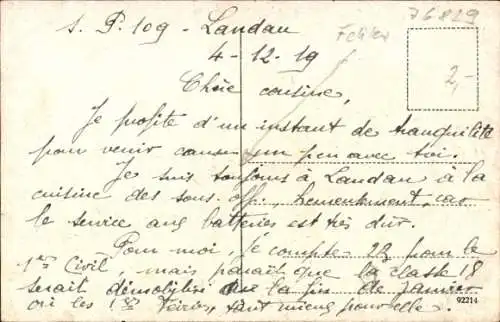 S. P. 109 - Landau
76829
4-12-19
2,-
Chère cousine,
Je profite d'un instant de tranquilité
pour venir causer un peu avec toi.
Je suis toujours à Landau à la
cuisine des sous-off., heureusement, car
le service aux batteries est très dur.
Pour moi, je compte pour le
1er Civil, mais parait que la classe 18
serait démobilisée la fin de Janvier
où les 1ers Février, tant mieux pour elle.
92214